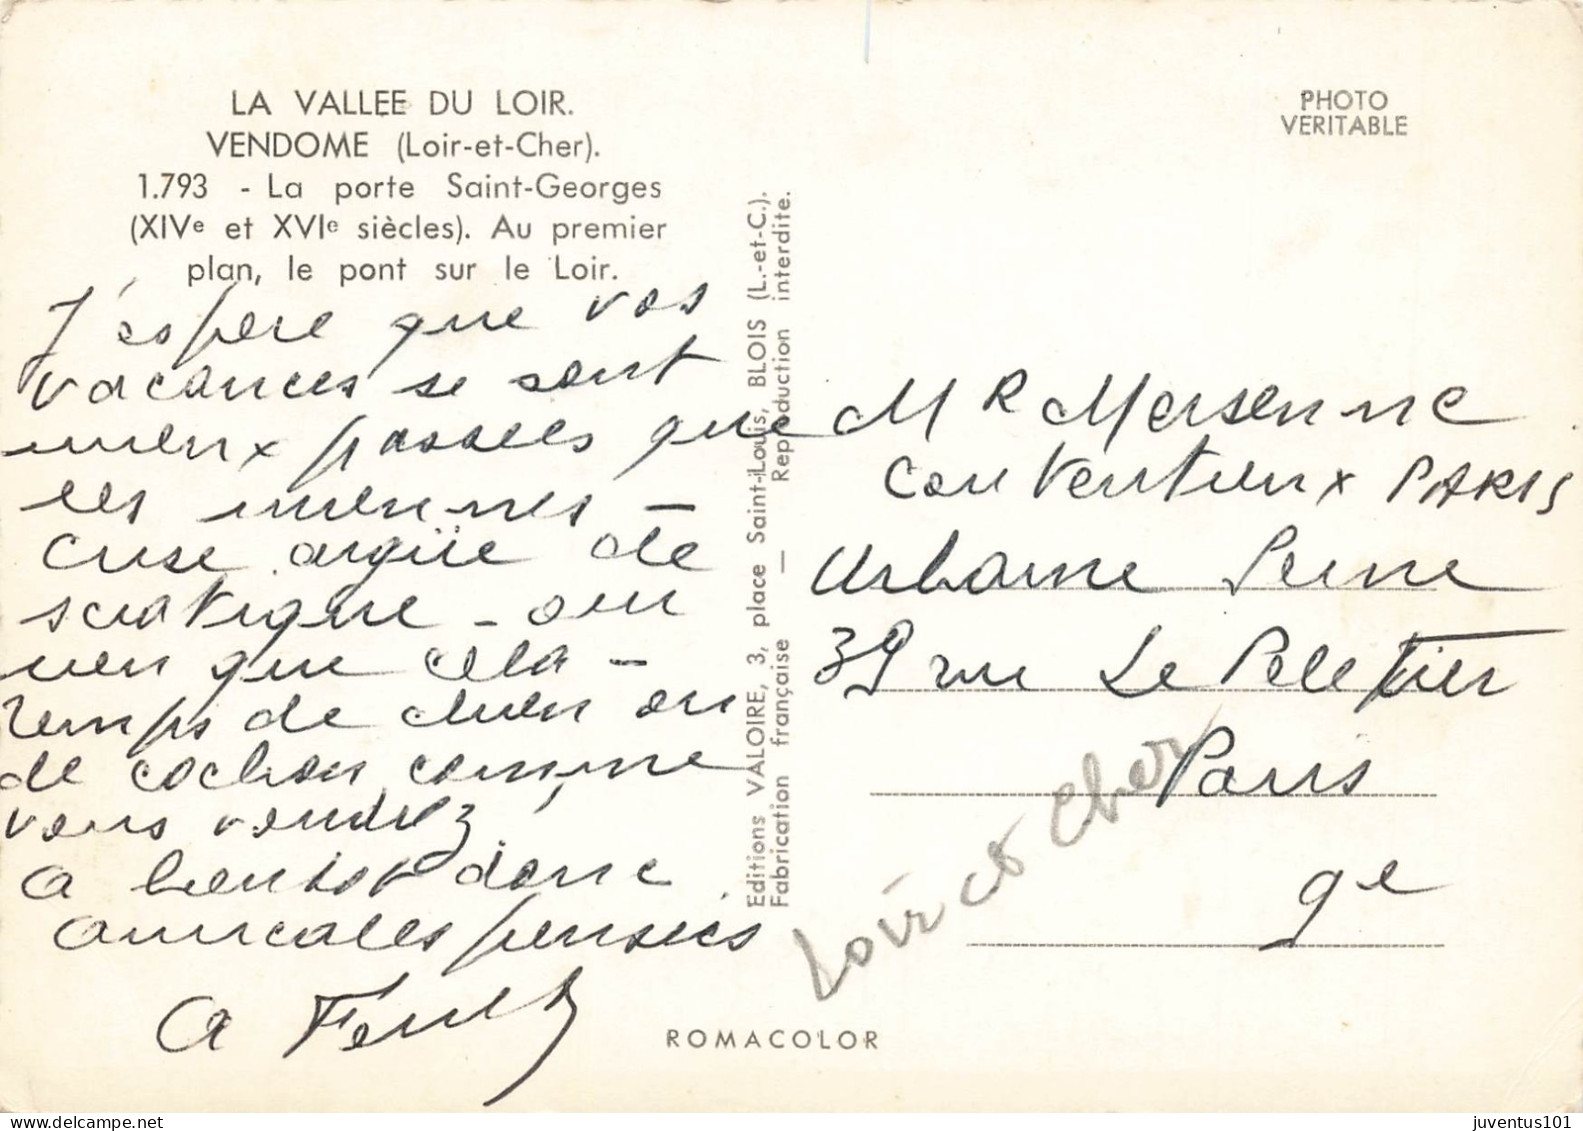 LA VALLEE DU LOIR.
VENDOME (Loir-et-Cher).
1.793 - La porte Saint-Georges
(XIVe et XVIe siècles). Au premier
plan, le pont sur le Loir.
J'espère que vos
vacances se sont
mieux passées que
les miennes -
Crise aigüe de
sciatique - oui
rien que cela -
Temps de chien ou
de cochon comme
vous voudrez!
A bientot donc
amicales pensées
A
Editions VALOIRE, 3, place Saint-Louis, BLOIS (L.-et-C.).
Fabrication française — Reproduction interdite.
PHOTO
VERITABLE
Mr Mersenne
Contentieux PARIS
Urbaine Seine
39 rue Le Peletier
Paris
9e
Loir et Cher
ROMACOLOR
juventus101